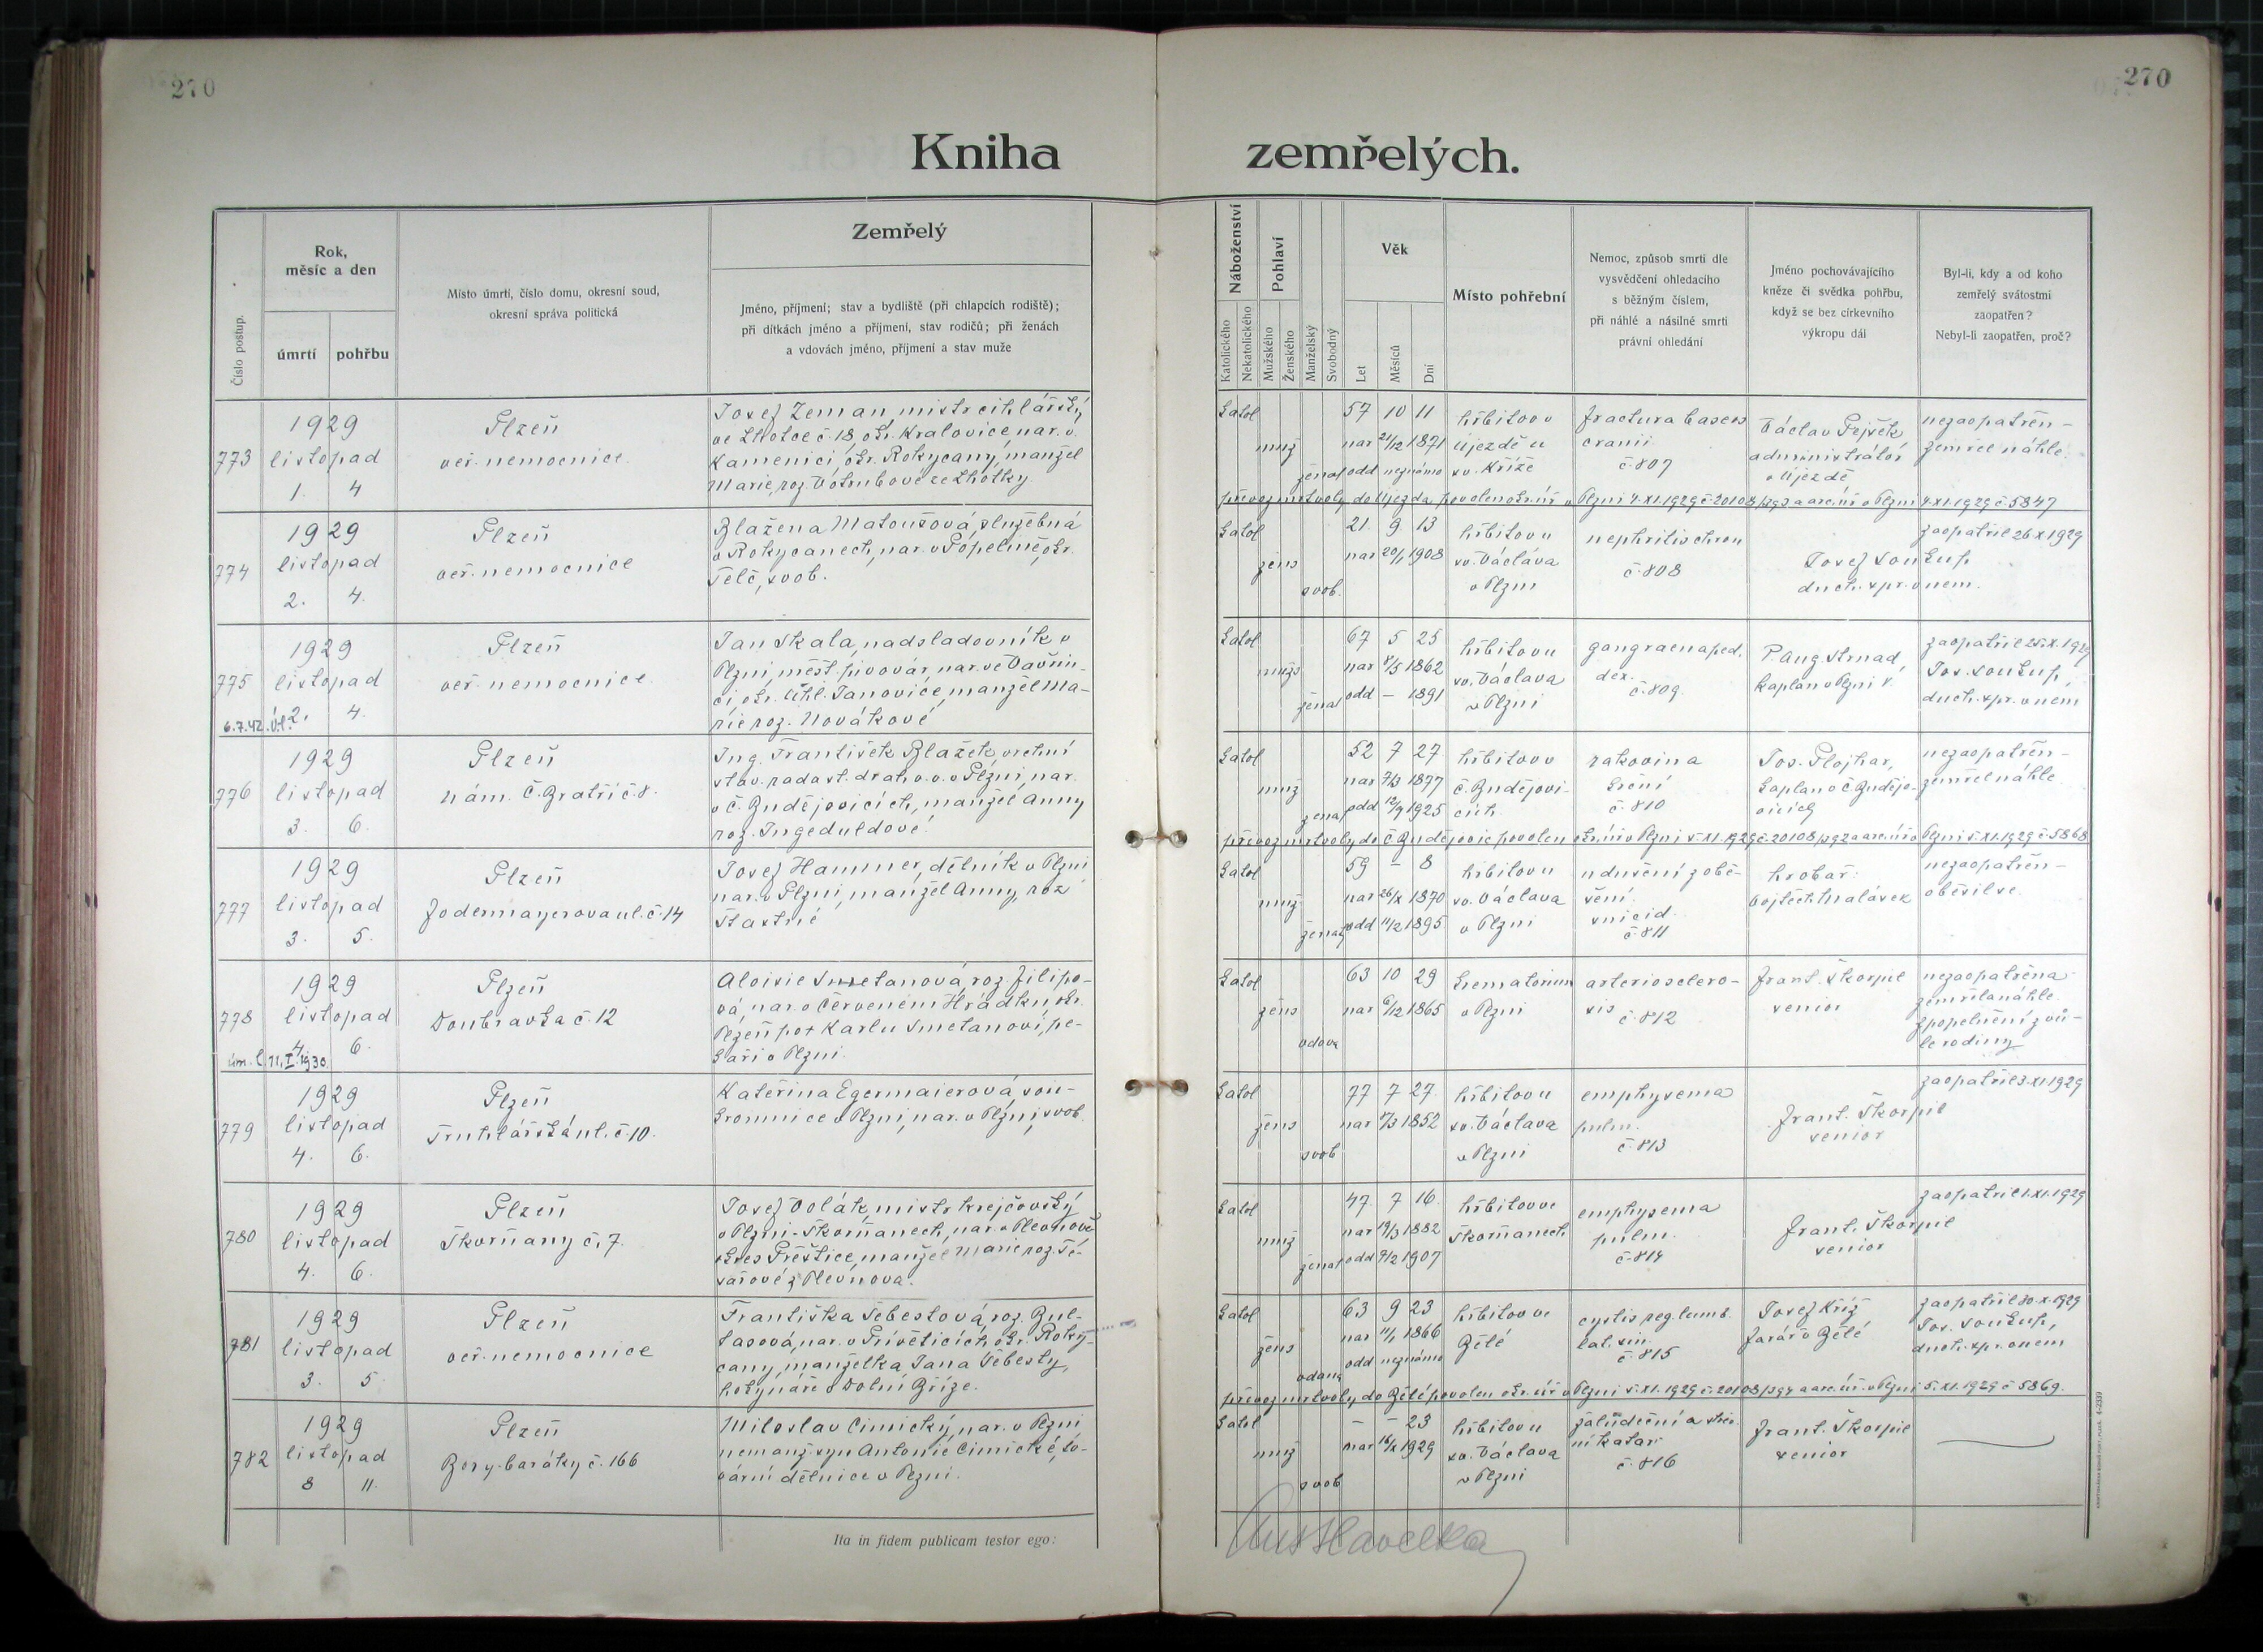 270
270
Kniha zemřelých.
Číslo postup.
Rok,
měsíc a den
úmrtí
pohřbu
Místo úmrtí, číslo domu, okresní soud,
okresní správa politická
Zemřelý
Jméno, příjmení; stav a bydliště (při chlapcích rodiště);
při dítkách jméno a příjmení, stav rodičů; při ženách
a vdovách jméno, příjmení a stav muže
Náboženství
Katolického
Nekatolického
Pohlaví
Mužského
Ženského
Manželský
Svobodný
Věk
Let
Měsíců
Dní
Místo pohřební
Nemoc, způsob smrti dle
vysvědčení ohledacího
s běžným číslem,
při náhlé a násilné smrti
právní ohledání
Jméno pochovávajícího
kněze či svědka pohřbu,
když se bez církevního
výkropu dál
Byl-li, kdy a od koho
zemřelý svátostmi
zaopatřen?
Nebyl-li zaopatřen, proč?
773
1929
listopad
1. 4
Plzeň
veř. nemocnice
Josef Zeman, mistr cihlářský
ve Lhotce č. 18, okr. Kralovice, nar. v
Kamenici, okr. Rokycany, manžel
Marie, roz. Votrubové ze Lhotky.
katol
muž
ženat
57 10 11
nar 21/12 1871
odd neznámo
hřbitov v
Újezdě u
sv. Kříže
fractura baseos
cranii
č. 807
Václav Pejšek,
administrátor
v Újezdě
nezaopatřen -
zemřel náhle.
převoz mrtvoly do Újezda povolen okr. úř. v Plzni 4.XI.1929 č. 20108/393 a arc. úř. v Plzni 4.XI.1929 č. 5847
774
1929
listopad
2. 4.
Plzeň
veř. nemocnice
Blažena Matoušová, služebná
v Rokycanech, nar. v Popelíně, okr.
Telč, svob.
katol
žens
svob.
21. 9. 13
nar 20/1 1908
hřbitov u
sv. Václava
v Plzni
nephritis chron
č. 808
Josef Soukup,
duch. spr. v nem.
zaopatřil 26.X.1929
775
1929
listopad
2. 4.
6.7.42. úl.
Plzeň
veř. nemocnice.
Jan Skala, nadsladovník v
Plzni, měšť. pivovár, nar. ve Vavřin-
ci, okr. Uhl. Janovice, manžel Ma-
rie roz. Novákové
katol
mužs
ženat
67 5 25
nar 8/5 1862
odd - 1891
hřbitov u
sv. Václava
v Plzni
gangraena ped.
dex.
č. 809.
P. Aug. Strnad,
kaplan v Plzni
zaopatřil 25.X.1929
Jos. Soukup,
duch. spr. v nem
776
1929
listopad
3. 6.
Plzeň
nám. Č. Bratří č. 8.
Ing. František Blažek, vrchní
stav. rada st. drah v.v. v Plzni, nar.
v Č. Budějovicích, manžel Anny
roz. Ingeduldové.
katol
muž
ženat
52 7 27
nar 7/3 1877
odd 12/9 1925
hřbitov v
Č. Budějovi-
cích.
rakovina
č. 810
Jos. Plojhar,
kaplan v Č. Budějo-
vicích
nezaopatřen -
zemřel náhle
převoz mrtvoly do Č. Budějovic povolen okr. úř. v Plzni 5.XI.1929 č. 20108/392 a arc. úř. v Plzni 5.XI.1929 č. 5868
777
1929
listopad
3. 5.
Plzeň
Jodermayerova ul. č. 14
Josef Hammer, dělník v Plzni
nar. v Plzni, manžel Anny, roz
Šťastné
katol
muž
ženat
59 - 8
nar 26/X 1870
odd 11/2 1895
hřbitov u
sv. Václava
v Plzni
udušení z obě-
šení.
suicid.
č. 811
hrobař:
Vojtěch Malásek
nezaopatřen -
oběsil se.
778
1929
listopad
4. 6.
úm. l. 11.I.1930.
Plzeň
Doubravka č. 12
Aloisie Smetanová, roz. Filipo-
vá, nar. v Červeném Hrádku, okr.
Plzeň po + Karlu Smetanovi, pe-
kaři v Plzni.
katol
žens
vdova
63 10 29
nar 6/12 1865
krematorium
v Plzni
arteriosclero-
sis
č. 812
Frant. Škorpil
senior
nezaopatřena
zemřela náhle.
Zpopelnění z vů-
le rodiny
779
1929
listopad
4. 6.
Plzeň
Truhlářská ul. č. 10.
Kateřina Egermaierová, sou-
kromnice v Plzni, nar. v Plzni, svob.
katol
žens
svob
77 7 27
nar 7/3 1852
hřbitov u
sv. Václava
v Plzni
emphysema
pulm.
č. 813
Frant. Škorpil
senior
zaopatřil 3.XI.1929
780
1929
listopad
4. 6.
Plzeň
Skvrňany č. 7.
Josef Volák, mistr krejčovský
v Plzni-Skvrňanech, nar. v Plevňově
okres Přeštice, manžel Marie roz. Te-
sařové z Plevňova.
katol
muž
ženat
47 7 16
nar 19/3 1882
odd 9/2 1907
hřbitov ve
Skvrňanech
emphysema
pulm.
č. 814
Frant. Škorpil
senior
zaopatřil 1.XI.1929
781
1929
listopad
3. 5
Plzeň
veř. nemocnice
Františka Šebestová, roz. Bul-
kasová, nar. v Přívěticích, okr. Roky-
cany, manželka Jana Šebesty,
v Dolní Bříze.
katol
žens
vdaná
63 9 23
nar 11/1 1866
odd neznámo
hřbitov ve
Bělé
cystis reg. lumb.
lat. sin.
č. 815
Josef Kříž
farář v Bělé
zaopatřil 30.X.1929
Jos. Soukup,
duch. spr. v nem
převoz mrtvoly do Bělé povolen okr. úř. v Plzni 5.XI.1929 č. 20108/394 a arc. úř. v Plzni 5.XI.1929 č. 5869.
782
1929
listopad
8 11.
Plzeň
Bory-baráky č. 166
Miloslav Cimický, nar. v Plzni
nemanž. syn Antonie Cimické, to-
vární dělnice v Plzni.
katol
muž
svob
- - 23
nar 16/X 1929
hřbitov u
sv. Václava
v Plzni
žalůdeční a střev
ní katar
č. 816
Frant. Škorpil
senior
Ita in fidem publicam testor ego:
Ant Havelka